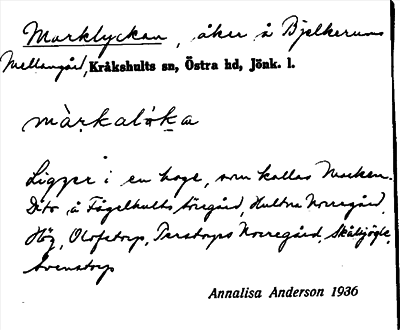 Marklyckan, åker å Bjelkerums
Mellangård, Kråkshults sn, Östra hd, Jönk. l.
màrkalóka
Ligger i en hage, som kallas Marken.
Dito å Fågelhults Sörgård, Hultna Norregård,
Hög, Olofstorp, Perstorps Norregård, Skälsjögle,
Svenstorp
Annalisa Anderson 1936